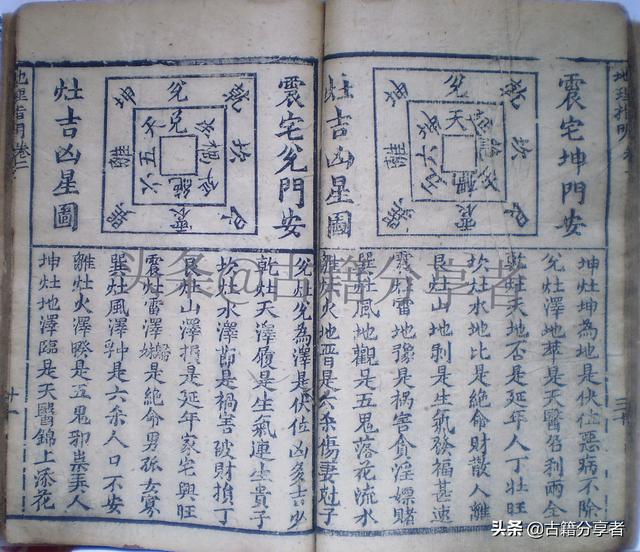 地理指明卷
震宅坤門安
灶吉凶星圖
坤
兌
乾
坎
艮
震
巽
離
天
六
五
坤灶坤為地是伏位惡病不除
兌灶澤地萃是天醫名利兩全
乾灶天地否是延年人丁壯旺
坎灶水地比是絕命財散人離
艮灶山地剝是生氣發福甚速
震灶雷地豫是禍害貪淫嫖賭
巽灶風地觀是五鬼落花流水
離灶火地晉是六杀傷妻尅子
震宅兌門安
灶吉凶星圖
坤
兌
乾
坎
艮
震
巽
離
六
五
兌灶兌為澤是伏位凶多吉少
乾灶天澤履是生氣運生貴子
坎灶水澤節是禍害破財損丁
艮灶山澤損是延年家宅興旺
震灶雷澤歸妹是絕命男孤女寡
巽灶風澤孚中是六杀人口不安
離灶火澤睽是五鬼邪祟弄人
坤灶地澤臨是天醫錦上添花
地理指明卷二
头条@古籍分享者
头条 @古籍分享者